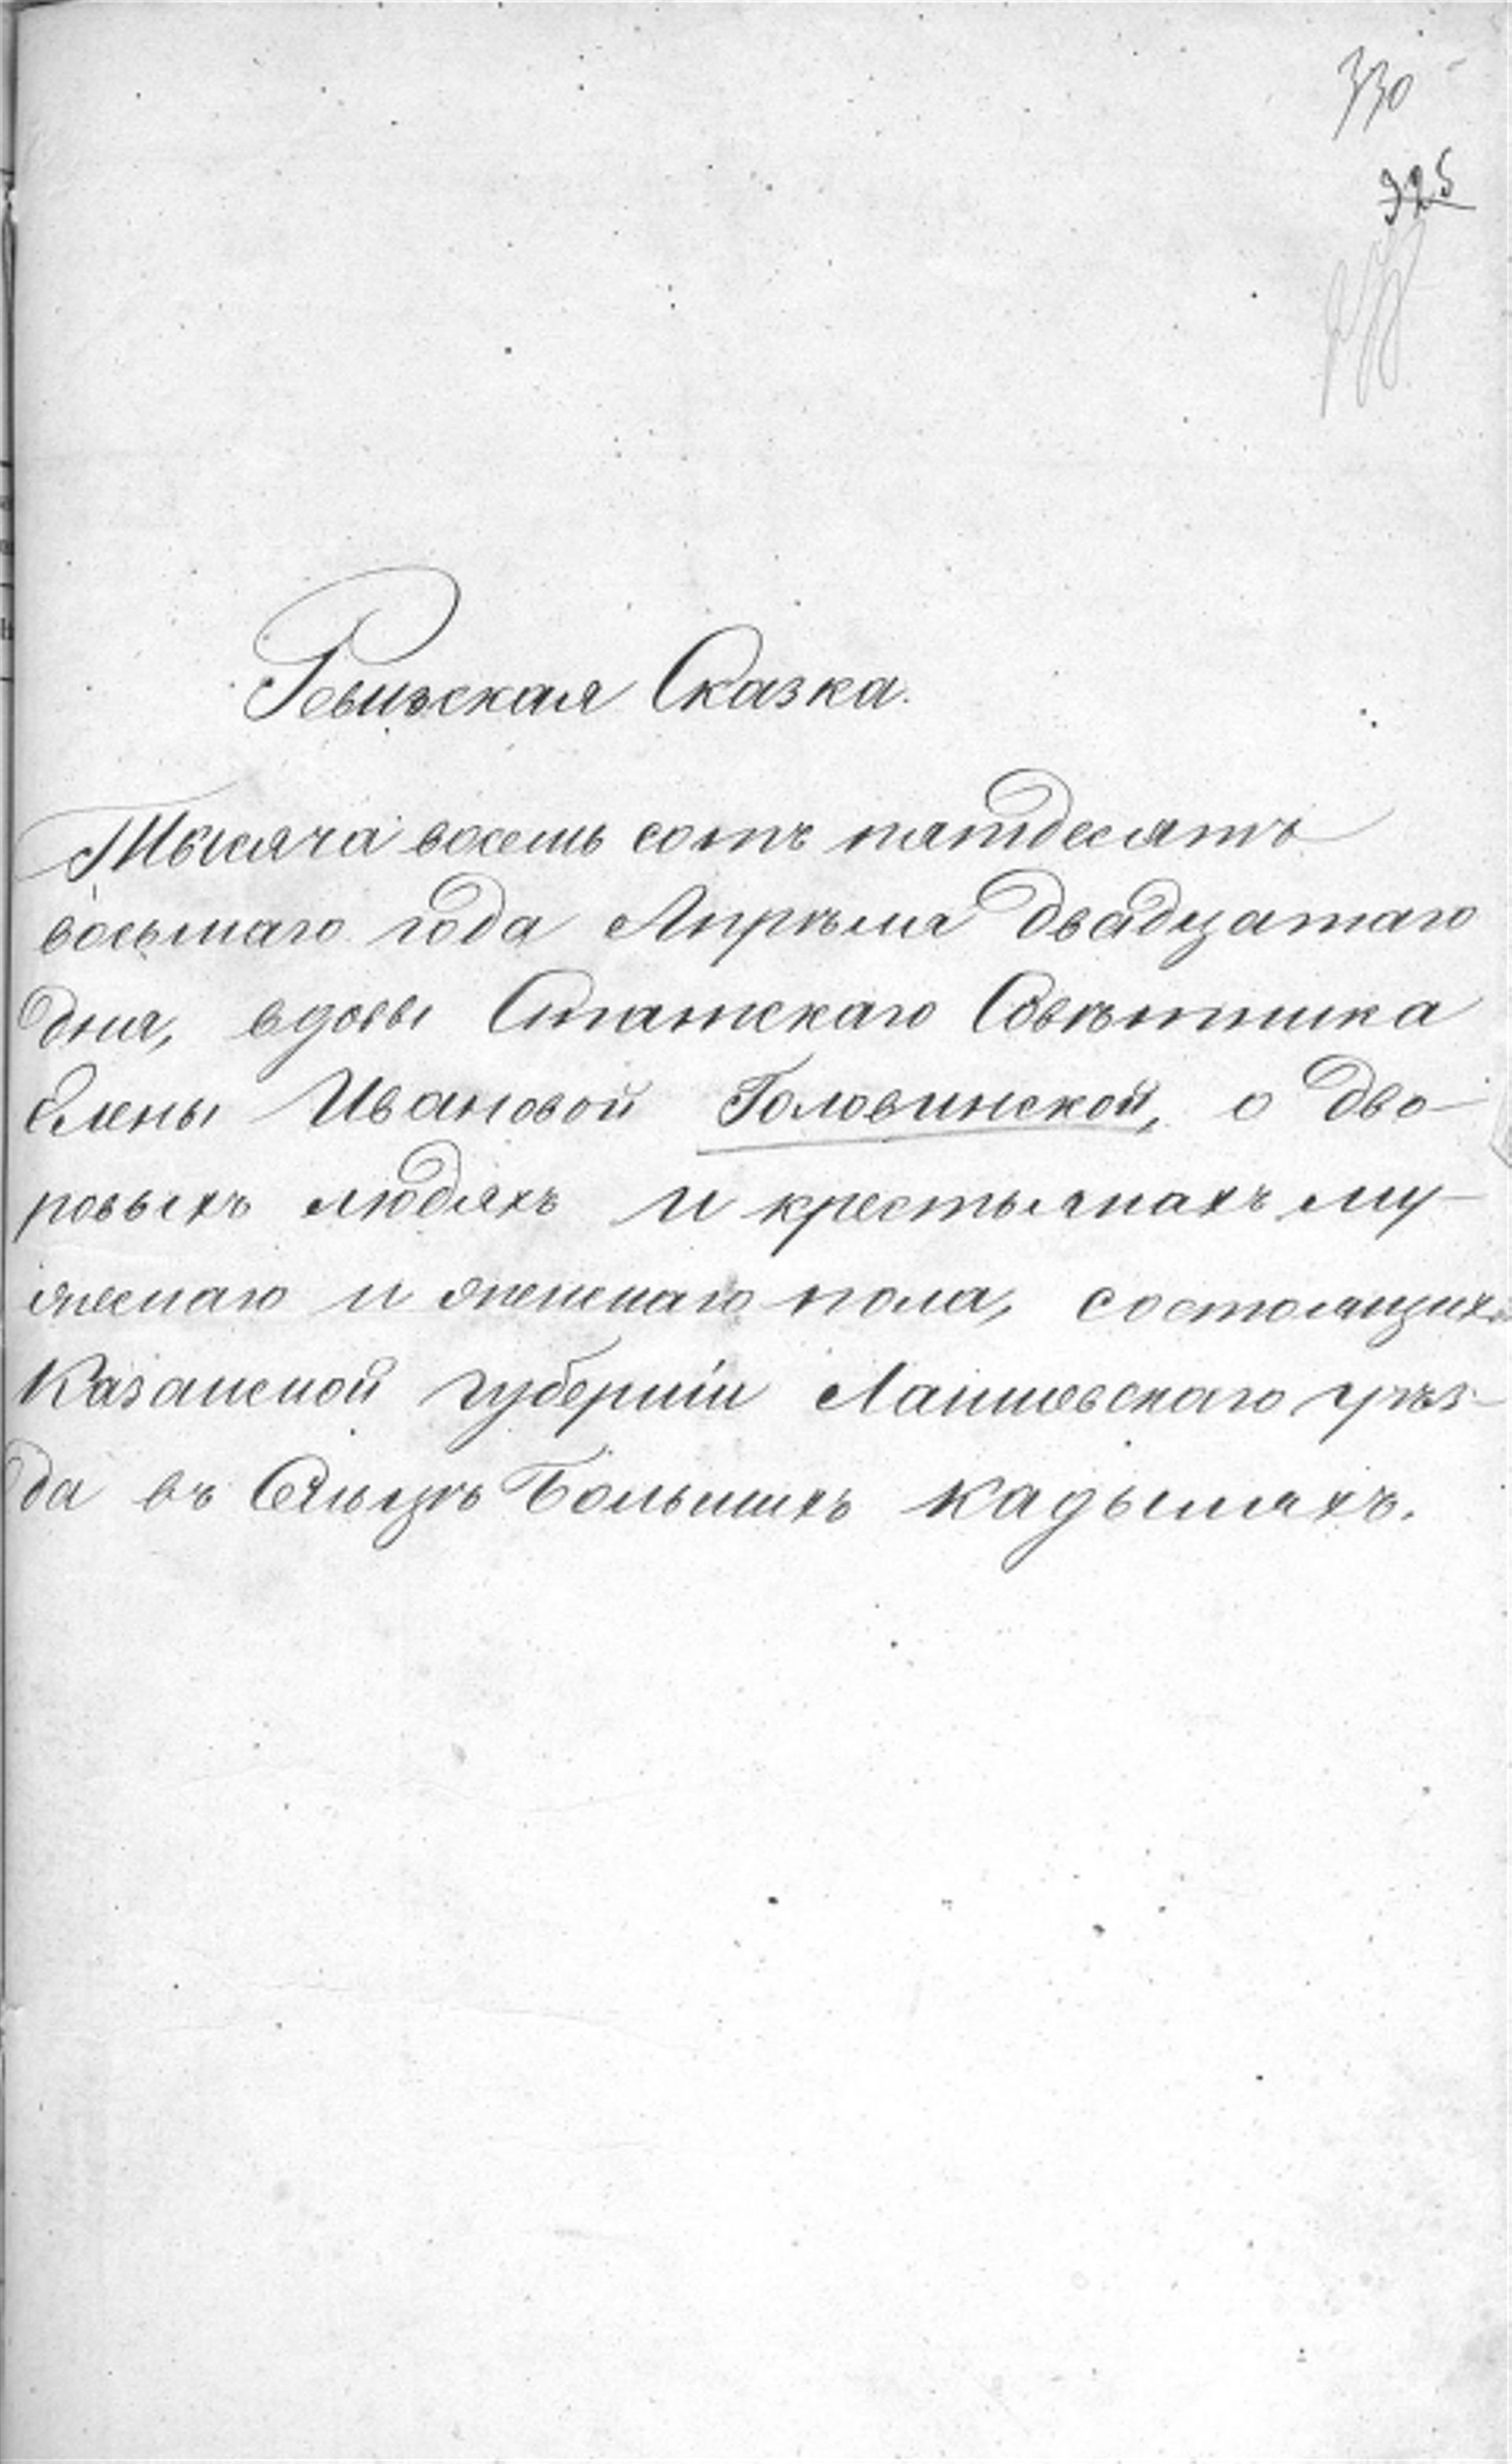 330
325
Ревизская Сказка.
Тысяча восемь сотъ пятдесятъ
восьмаго года Апрѣля двадцатаго
дня, вдовы Статскаго Совѣтника
Елены Ивановой Головинской, о дво-
ровыхъ людяхъ и крестьянахъ му-
жескаго и женскаго пола, состоящихъ
Казанской губерніи Лаишевскаго уѣз-
да въ Сельцѣ Большихъ Кадыляхъ.